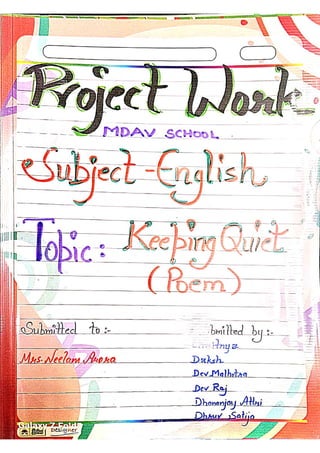 Project Work
MDAV SCHOOL
Subject - English
Topic: Keeping Quiet
(Poem)
Submitted to :- bmitted by :-
Mrs. Neelam Arora
Daksh
Dev Malhotra
Dev Raj
Dhananjay Attri
Dhruv Satija
Designer